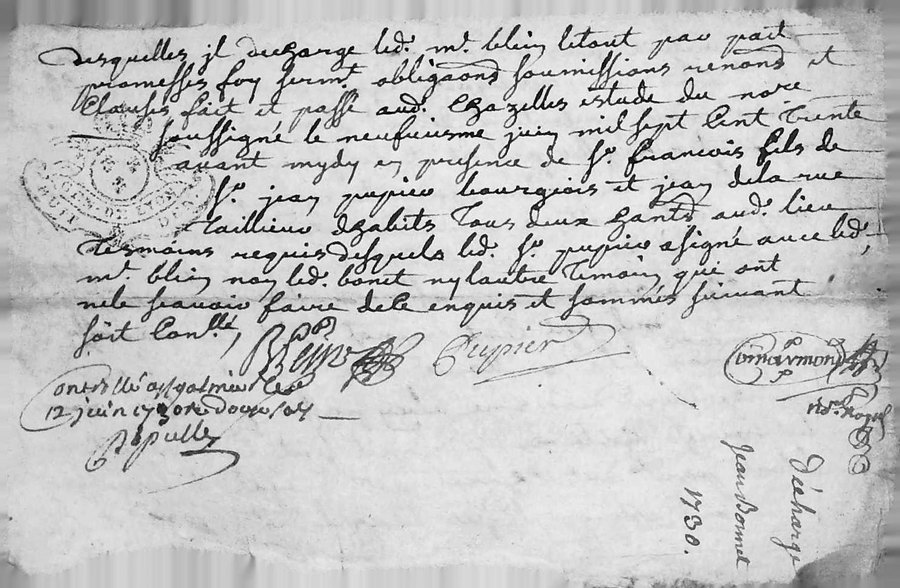 desquelles il decharge led. mr. blein le tout par pait
promesses foy sermt. obligaons soumissions renons et
Clauses fait et passé aud. Chazelles estude du nore
soussigné le neufviesme juin mil sept Cent trente
avant mydy en presence de sr. francois fils de
sr. jean pupier bourgeois et jean dela rue
tailleur dhabits tous deux hants aud. lieu
tesmoins requis desquels led. sr. pupier a signé avec led.
mr. blein non led. bonet ny lautre temoin qui ont
ne le scavoir faire de ce enquis et sommés suivant
soit Conllé,
Blein
Pupier
12 juin 1730
nore. Royal
décharge
Jean Bonnet
1730.